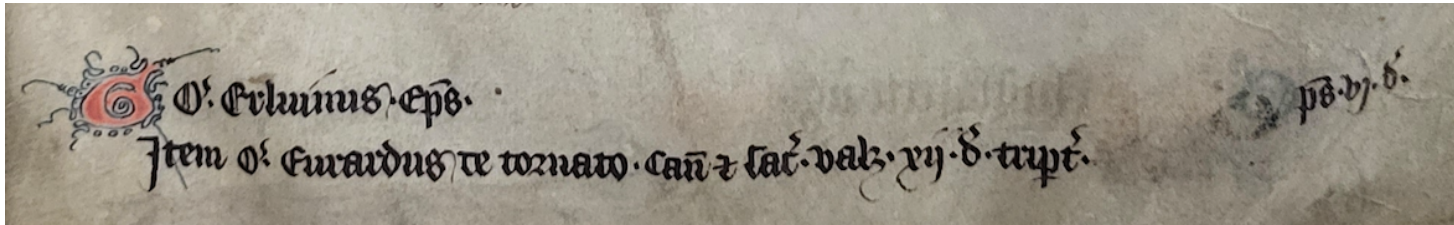 G Oꝰ. Erluuinus. Ep̄s. p̄s. vj. d᷎.
Item Oꝰ. Eurardus de tornaco. Can̄ ⁊ sac᷎. valꝫ. xij. d᷎. tript᷎.